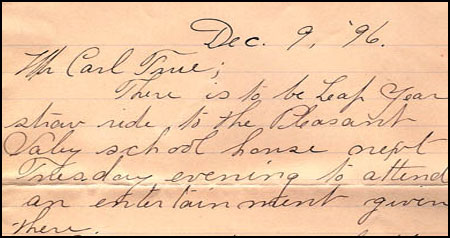 Dec. 9, '96.
Mr Carl True;
There is to be Leap Year
straw ride to the Pleasant
school house next
Tuesday evening to attend
an entertainment given
there.